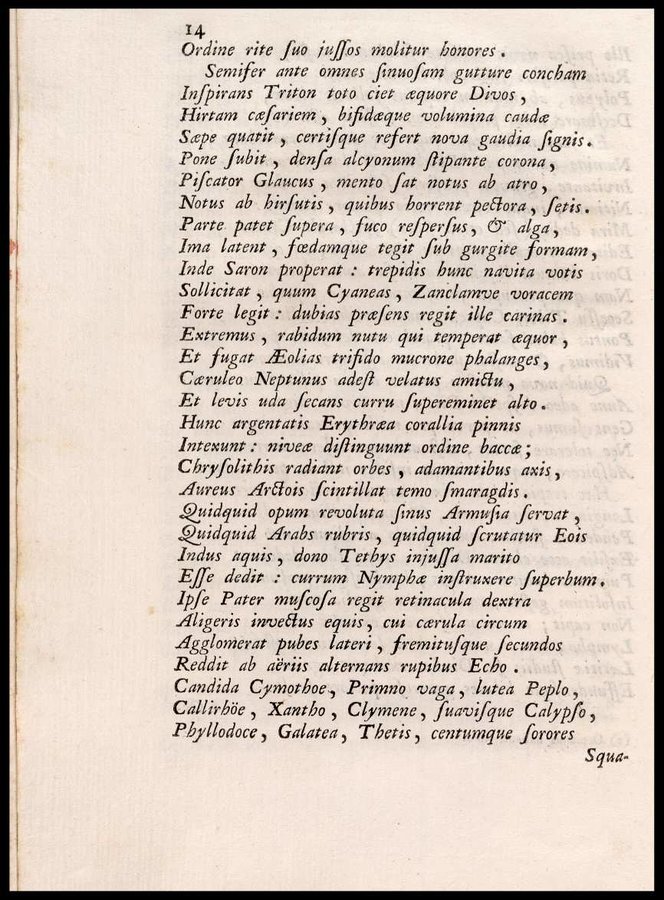 14
Ordine rite ſuo juſſos molitur honores.
Semifer ante omnes ſinuoſam gutture concham
Inſpirans Triton toto ciet æquore Divos,
Hirtam cæſariem, bifidæque volumina caudæ
Sæpe quatit, certiſque refert nova gaudia ſignis.
Pone ſubit, denſa alcyonum ſtipante corona,
Piſcator Glaucus, mento ſat notus ab atro,
Notus ab hirſutis, quibus horrent pectora, ſetis.
Parte patet ſupera, fuco reſperſus, & alga,
Ima latent, fœdamque tegit ſub gurgite formam,
Inde Saron properat: trepidis hunc navita votis
Sollicitat, quum Cyaneas, Zanclamve voracem
Forte legit: dubias præſens regit ille carinas.
Extremus, rabidum nutu qui temperat æquor,
Et fugat Æolias trifido mucrone phalanges,
Cæruleo Neptunus adeſt velatus amictu,
Et levis uda ſecans curru ſupereminet alto.
Hunc argentatis Erythræa corallia pinnis
Intexunt: niveæ diſtinguunt ordine baccæ;
Chryſolithis radiant orbes, adamantibus axis,
Aureus Arctois ſcintillat temo ſmaragdis.
Quidquid opum revoluta ſinus Armuſia ſervat,
Quidquid Arabs rubris, quidquid ſcrutatur Eois
Indus aquis, dono Tethys injuſſa marito
Eſſe dedit: currum Nymphæ inſtruxere ſuperbum.
Ipſe Pater muſcoſa regit retinacula dextra
Aligeris invectus equis, cui cærula circum
Agglomerat pubes lateri, fremituſque ſecundos
Reddit ab aëriis alternans rupibus Echo.
Candida Cymothoe, Primno vaga, lutea Peplo,
Callirhöe, Xantho, Clymene, ſuaviſque Calypſo,
Phyllodoce, Galatea, Thetis, centumque ſorores
Squa-